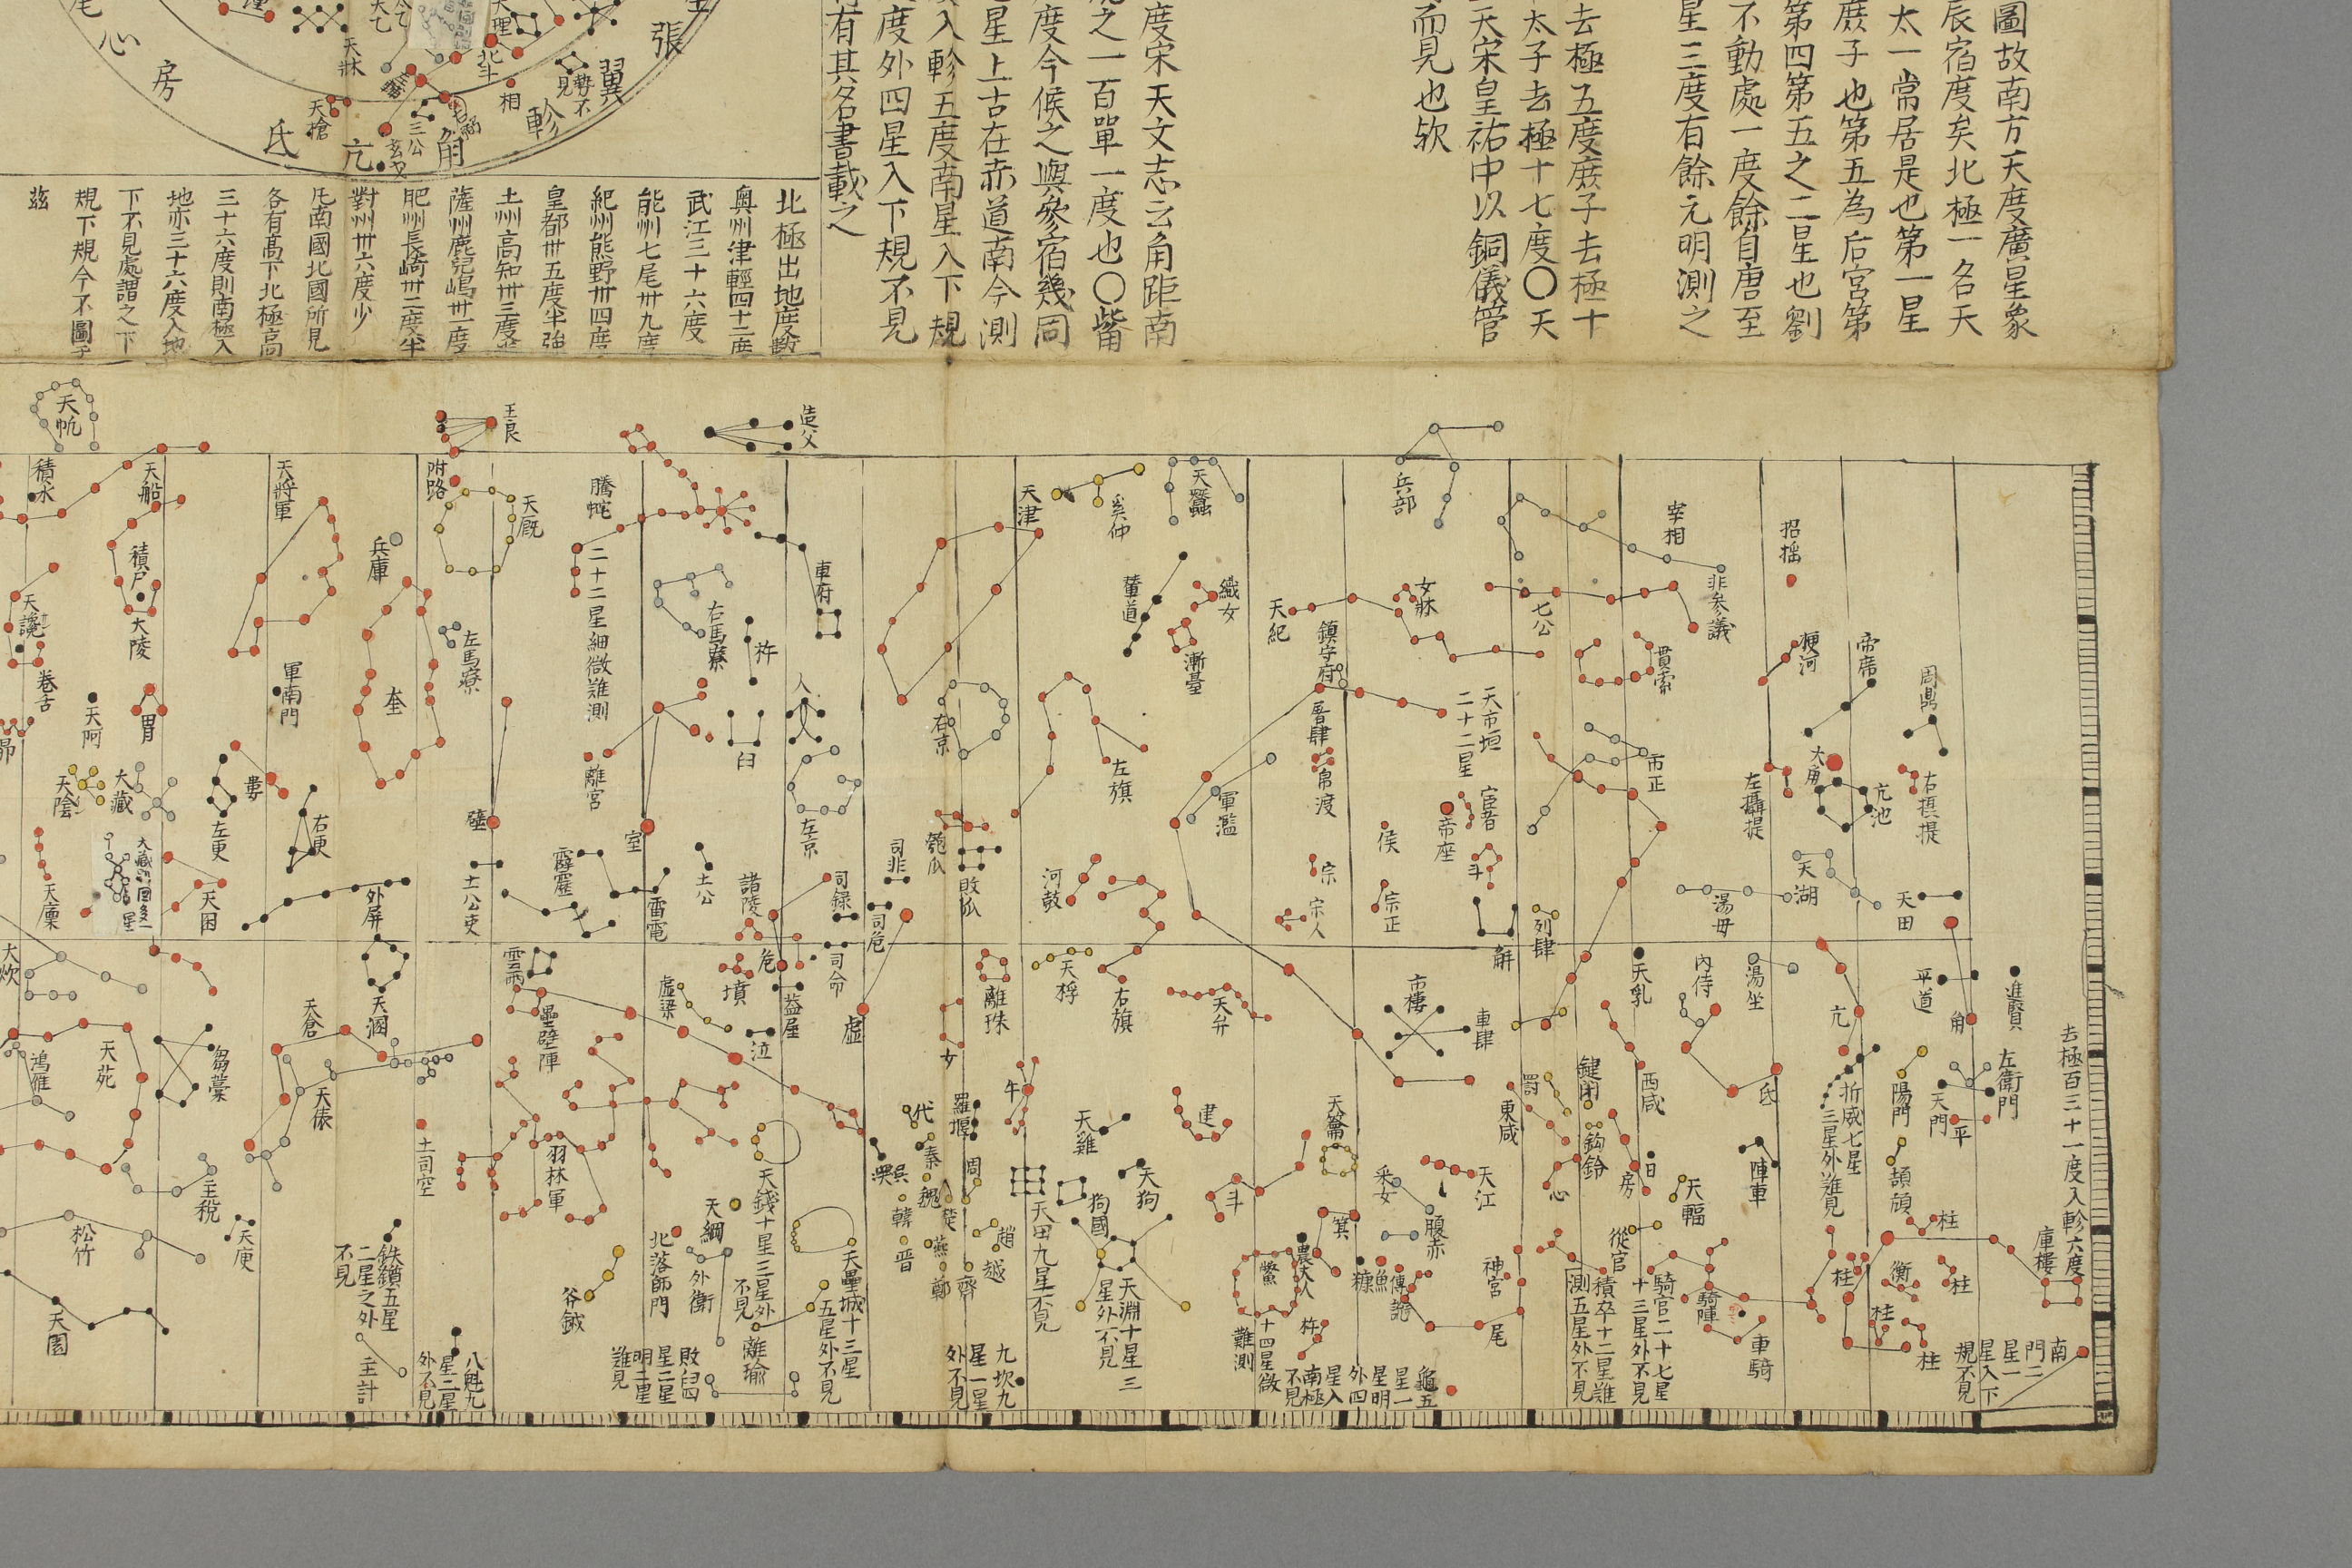 圖故南方天度廣星象
辰宿度矣北極一名天
太一常居是也第一星
庶子也第五為后宮第
第四第五之二星也劉
不動處一度餘自唐至
星三度有餘元明測之
去極五度庶子去極十
太子去極十七度〇天
天宋皇祐中以銅儀管
而見也欤
度宋天文志云角距南
之一百單一度也〇觜
度今候之與參宿幾同
星上古在赤道南今測
入軫五度南星入下規
度外四星入下規不見
有其名書載之
張
翼
軫
角
亢
氐
房
心
尾
北斗
相
三公
玄戈
天槍
天牀
天理
天乙
北極出地度數
奥州津輕四十二度
武江三十六度
能州七尾卅九度
紀州熊野卅四度
皇都卅五度半強
土州高知卅三度半
薩州鹿兒嶋卅一度
肥州長崎卅二度半
對州卅六度少
凡南國北國所見
各有高下北極高
三十六度則南極入
地亦三十六度入地
下不見處謂之下
規下規今不圖于
茲
造父
王良
天帆
宰相
招搖
兵部
天蠶
奚仲
天津
騰蛇
二十二星細微難測
附路
天廐
天將軍
天船
積水
非參議
七公
女牀
天紀
織女
輦道
漸臺
車府
杵
右馬寮
左馬寮
兵庫
積尸
大陵
天讒
卷舌
周鼎
帝席
梗河
貫索
鎮守府
天市垣
二十二星
晋肆
帛渡
右京
左旗
人
臼
離宮
奎
軍南門
胃
天阿
昴
右摂提
亢池
大角
左攝提
市正
宦者
帝座
侯
軍濫
瓠瓜
左京
室
壁
婁
右更
左更
大藏
天陰
天田
天湖
湯母
斗
列肆
宗
宗正
宗人
河鼓
敗瓜
司非
司祿
司危
諸陵
土公
霹靂
雷電
土公吏
外屏
天囷
天廩
進賢
平道
角
亢
湯坐
內侍
天乳
斛
市樓
車肆
天弁
右旗
天桴
離珠
司命
危
墳
蓋屋
虛
虛梁
雲雨
壘壁陣
泣
天溷
天倉
芻藁
天苑
大炊
鴻雁
去極百三十一度入軫六度
左衛門
天門
平
陽門
折威七星
三星外難見
氐
西咸
鍵閉
罰
東咸
鈎鈐
心
房
日
天輻
陣車
頡頏
天江
天籥
建
天雞
牛
女
羅堰
代
秦
周
魏
韓
晋
燕
鄭
齊
趙
越
天錢十星三星外
不見
羽林軍
土司空
天俵
主税
松竹
天庾
天園
庫樓
柱
衡
柱
柱
柱
南門二
星一
星入下
規不見
騎陣
車騎
騎官二十七星
十三星外不見
從官
積卒十二星難
測五星外不見
神宮
尾
腹赤
采女
箕
斗
農大人
糠
魚
傅說
鱉
十四星微
難測
杵
龜五
星一
星明
外四
星入
南極
不見
天狗
狗國
天淵十星三
星外不見
天田九星不見
九坎九
星一星
外不見
天壘城十三星
五星外不見
離瑜
天綱
北落師門
外衛
敗臼四
星二星
明二星
難見
八魁九
星二星
外不見
鈇鑕五星
二星之外
不見
主計